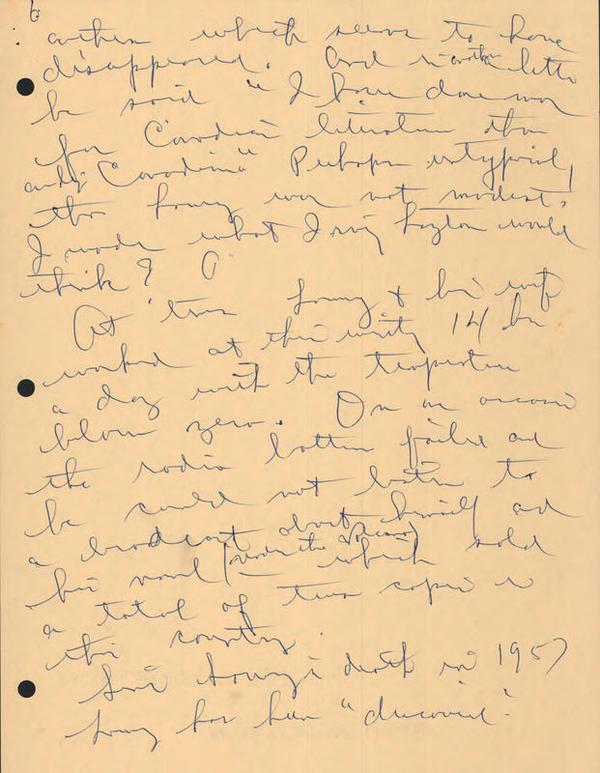 6
anthem which seems to have
disappeared. And in another letter
he said "I have done more
for Canadian literature than
any Canadian" Perhaps untypical,
tho Lowry was not modest.
I wonder what Irving Layton would
think?
At times Lowry & his wife
worked at their writing 14 hrs
a day with the temperature
below zero. On one occasion
the radio battery failed and
he could not listen to
a broadcast about himself and
his novel (under the Volcano) which sold
a total of two copies in
this country.
Since Lowry's death in 1957
Lowry has been "discovered".